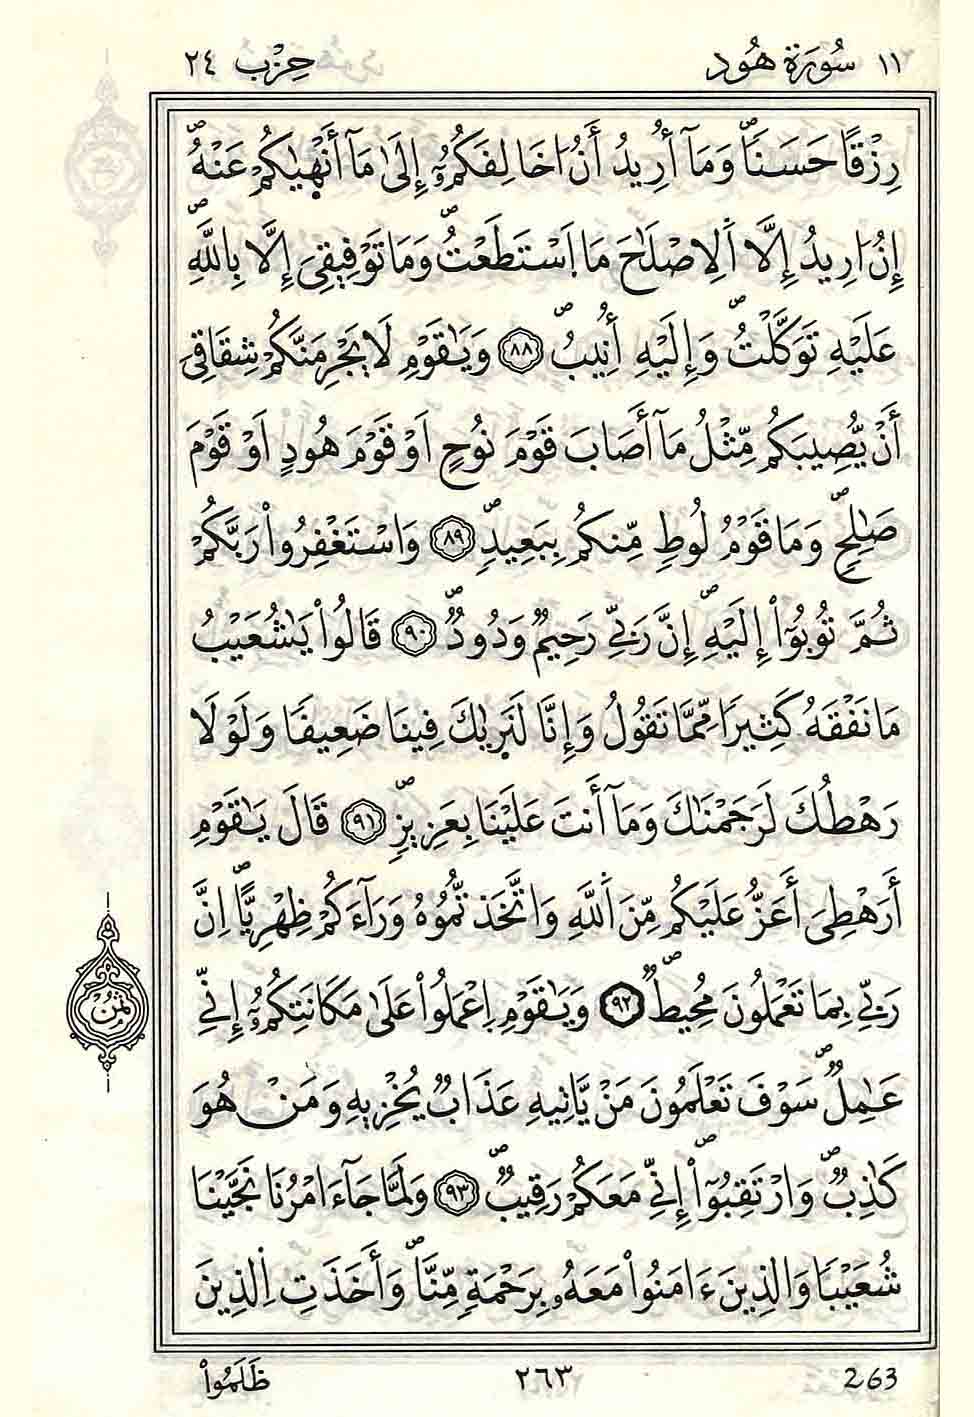 ١١ سُورَةُ هُود حِزْب ٢٤
رِزْقًا حَسَنًا وَمَآ أُرِيدُ أَنُ اخَالِفَكُمُۥٓ إِلَىٰ مَآ أَنْهٜىٰكُمْ عَنْهُ
إِنُ ارِيدُ إِلَّا اَلِاصْلَٰحَ مَا اَسْتَطَعْتُ وَمَا تَوْفِيقِىَ إِلَّا بِاللَّهِ
عَلَيْهِ تَوَكَّلْتُ وَإِلَيْهِ أُنِيبُ ٨٨ وَيَٰقَوْمِ لَا يَجْرِمَنَّكُمْ شِقَاقِى
أَنْ يُّصِيبَكُم مِّثْلُ مَآ أَصَابَ قَوْمَ نُوحٍ اَوْ قَوْمَ هُودٍ اَوْ قَوْمَ
صَٰلِحٍ وَمَا قَوْمُ لُوطٍ مِّنكُم بِبَعِيدٍ ٨٩ وَاسْتَغْفِرُوا۟ رَبَّكُمْ
ثُمَّ تُوبُوٓا۟ إِلَيْهِ إِنَّ رَبِّى رَحِيمٌ وَدُودٌ ٩٠ قَالُوا۟ يَٰشُعَيْبُ
مَا نَفْقَهُ كَثِيرًا مِّمَّا تَقُولُ وَإِنَّا لَنَرٜىٰكَ فِينَا ضَعِيفًا وَلَوْلَا
رَهْطُكَ لَرَجَمْنَٰكَ وَمَآ أَنتَ عَلَيْنَا بِعَزِيزٍ ٩١ قَالَ يَٰقَوْمِ
أَرَهْطِىَ أَعَزُّ عَلَيْكُم مِّنَ اَللَّهِ وَاتَّخَذتُّمُوهُ وَرَآءَكُمْ ظِهْرِيًّا اِنَّ
رَبِّى بِمَا تَعْمَلُونَ مُحِيطٌ ٩٢ وَيَٰقَوْمِ اِعْمَلُوا۟ عَلَىٰ مَكَانَتِكُمُۥٓ إِنِّى
عَٰمِلٌ سَوْفَ تَعْلَمُونَ مَنْ يَّاتِيهِ عَذَابٌ يُخْزِيهِ وَمَنْ هُوَ
كَٰذِبٌ وَارْتَقِبُوٓا۟ إِنِّى مَعَكُمْ رَقِيبٌ ٩٣ وَلَمَّا جَآءَ امْرُنَا نَجَّيْنَا
شُعَيْبًا وَالذِينَ ءَامَنُوا۟ مَعَهُۥ بِرَحْمَةٍ مِّنَّا وَأَخَذَتِ اِلذِينَ
ثُمُن
ظَلَمُوا۟ ٢٦٣ 263